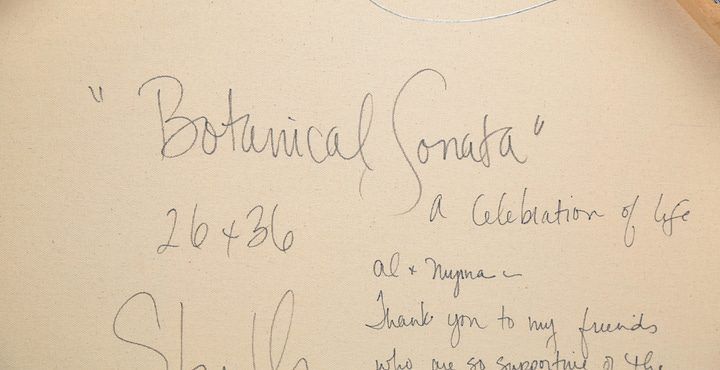 "Botanical Sonata"
a Celebration of life
26 x 36
al +
Thank you to my friends
who are so supportive of the